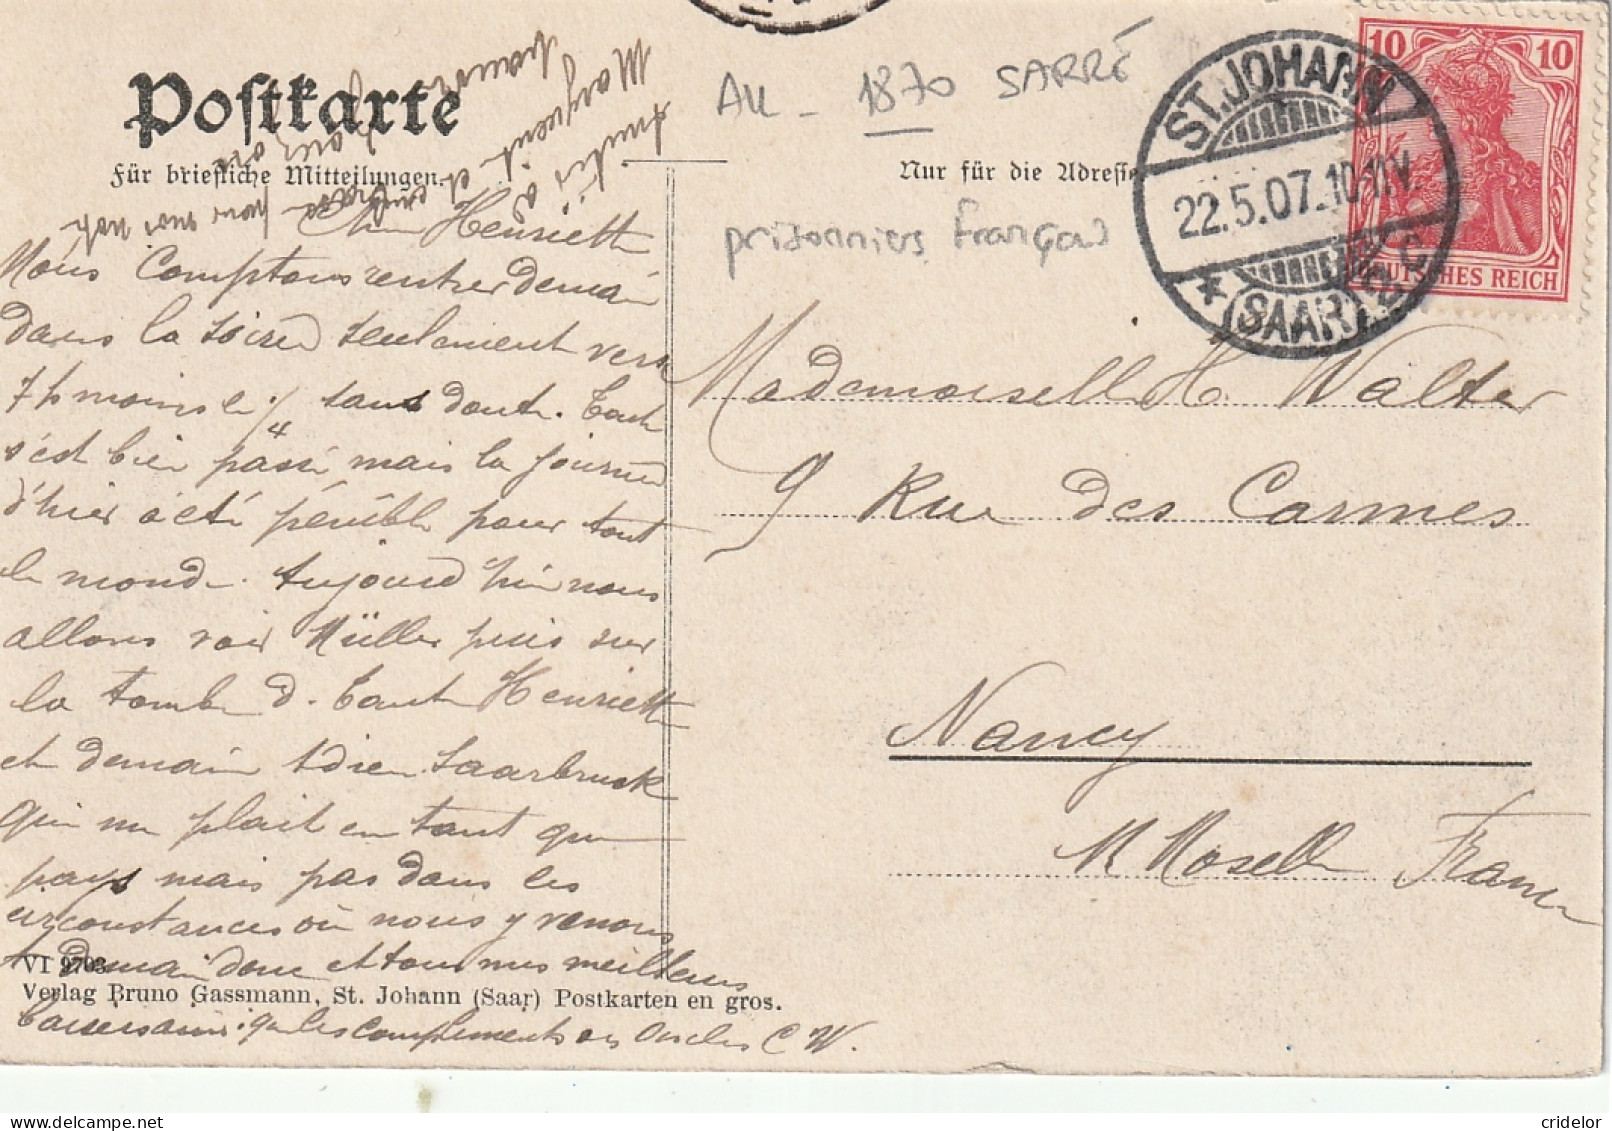 Postkarte
Für briefliche Mitteilungen.
Nur für die Adresse
All - 1870 SARRE
prisonniers français
10 10
DEUTSCHES REICH
ST. JOHANN
22.5.07.10-11.V.
(SAAR)
Chère Henriette
Nous comptons rentrer demain
dans la soirée seulement vers
7h moins le 1/4 sans doute. Tout
s'est bien passé mais la journée
d'hier a été pénible pour tout
le monde. Aujourd'hui nous
allons voir Müller puis sur
la tombe d. tante Henriette
et demain adieu Saarbruck
qui me plait en tant que
pays mais pas dans les
circonstances où nous y venons
A demain donc et tous mes meilleurs
baisers ainsi que les compliments des oncles C W.
Amitiés à
Marguerite et
Mademoiselle H. Walter
9 Rue des Carmes
Nancy
M Moselle France
VI 9703
Verlag Bruno Gassmann, St. Johann (Saar) Postkarten en gros.
cridelor